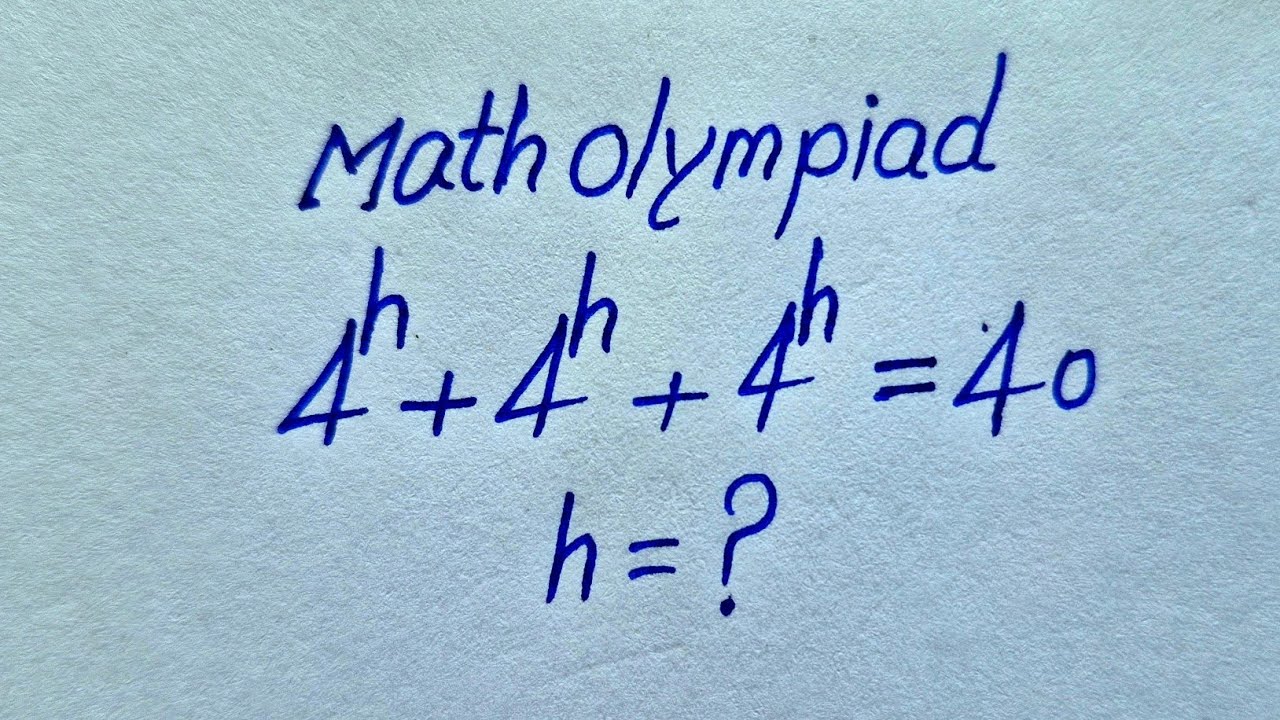 Math olympiad
4^h + 4^h + 4^h = 40
h = ?